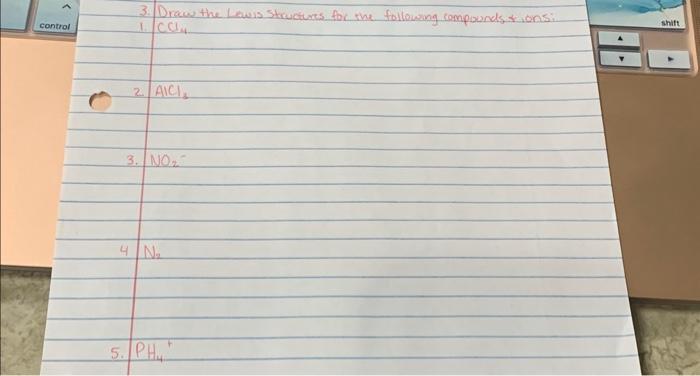 control
shift
3. Draw the Lewis Structures for the following compounds & ions:
1. CCl₄
2. AlCl₃
3. NO₂⁻
4 N₂
5. PH₄⁺